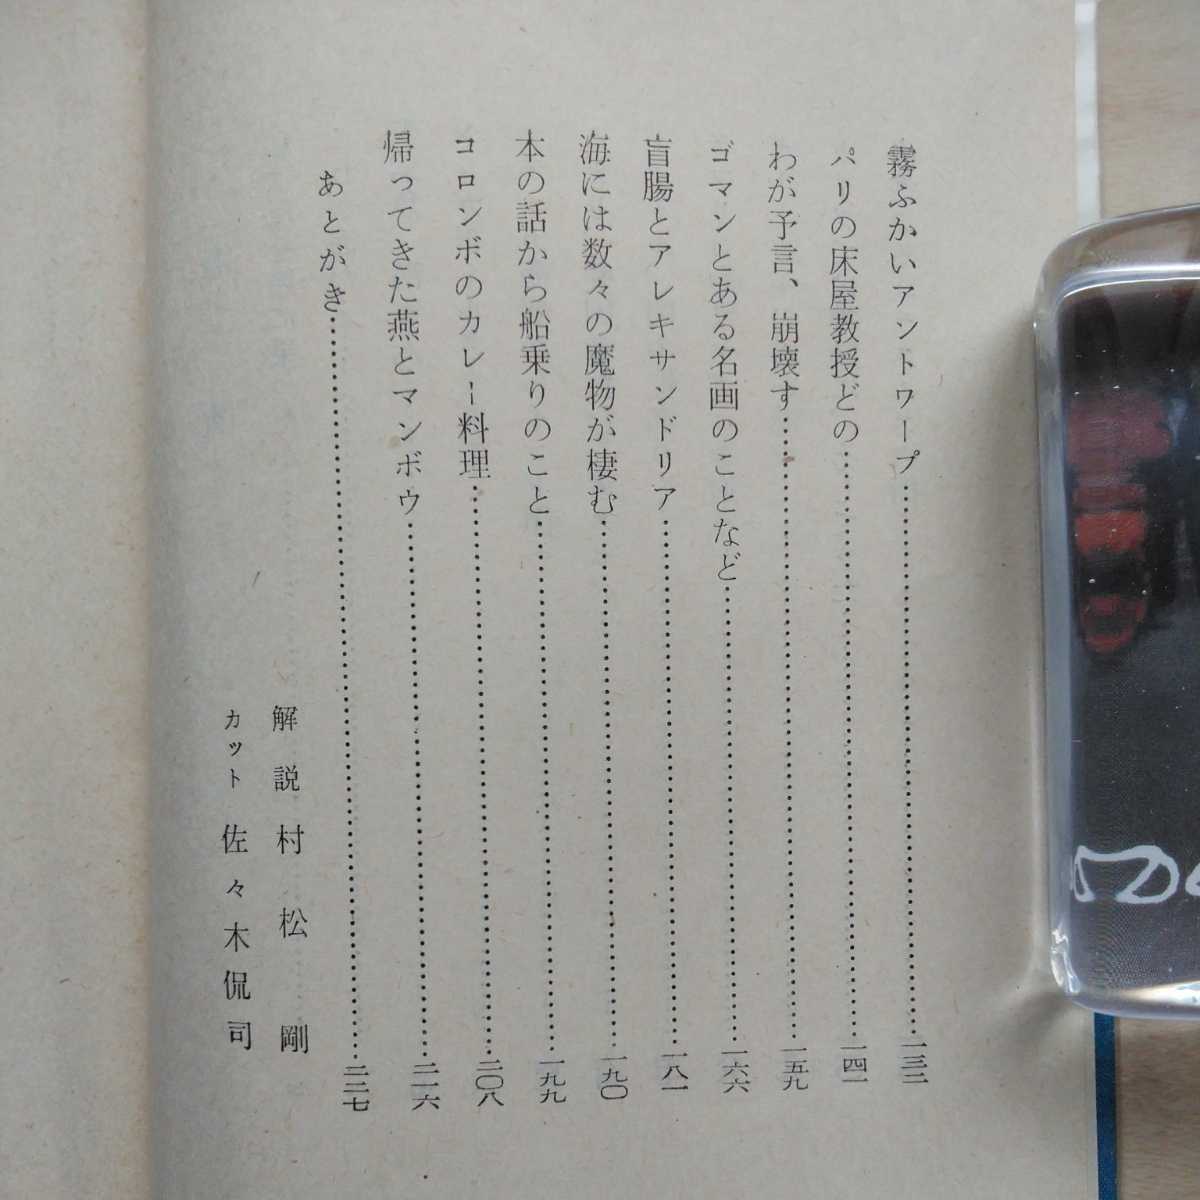 霧ふかいアントワープ……一三二
パリの床屋教授どの……一四一
わが予言、崩壊す……一五九
ゴマンとある名画のことなど……一六六
盲腸とアレキサンドリア……一八一
海には数々の魔物が棲む……一九〇
本の話から船乗りのこと……一九九
コロンボのカレー料理……二〇八
帰ってきた燕とマンボウ……二一六
あとがき……二二七
解説 村松剛
カット 佐々木侃司